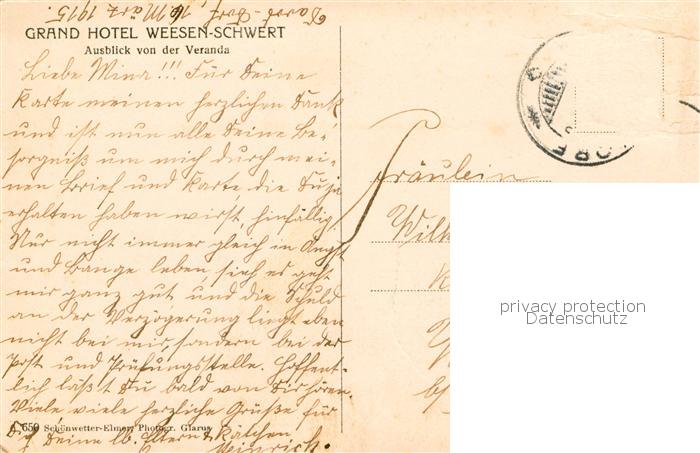 Davos-Dorf, 16. März 1915.
GRAND HOTEL WEESEN-SCHWERT
Ausblick von der Veranda
Liebe Mina!!! Für Deine
Karte meinen herzlichen Dank
und ist nun alle Deine Be-
sorgniß um mich durch mei-
nen Brief und Karte, die Du ja
erhalten haben wirst, hinfällig.
Nur nicht immer gleich in Angst
und Bange leben, sieh es geht
mir ganz gut und die Schuld
an der Verzögerung liegt eben
nicht bei mir, sondern bei der
Post und Prüfungsstelle. Hoffent-
lich läßt Du bald von Dir hören.
Viele viele herzliche Grüße für
650 Schönwetter-Elmer, Photogr. Glarus
Dich, Deine lb. Eltern & Kätchen
Heinrich.
DORF
Fräulein
privacy protection
Datenschutz